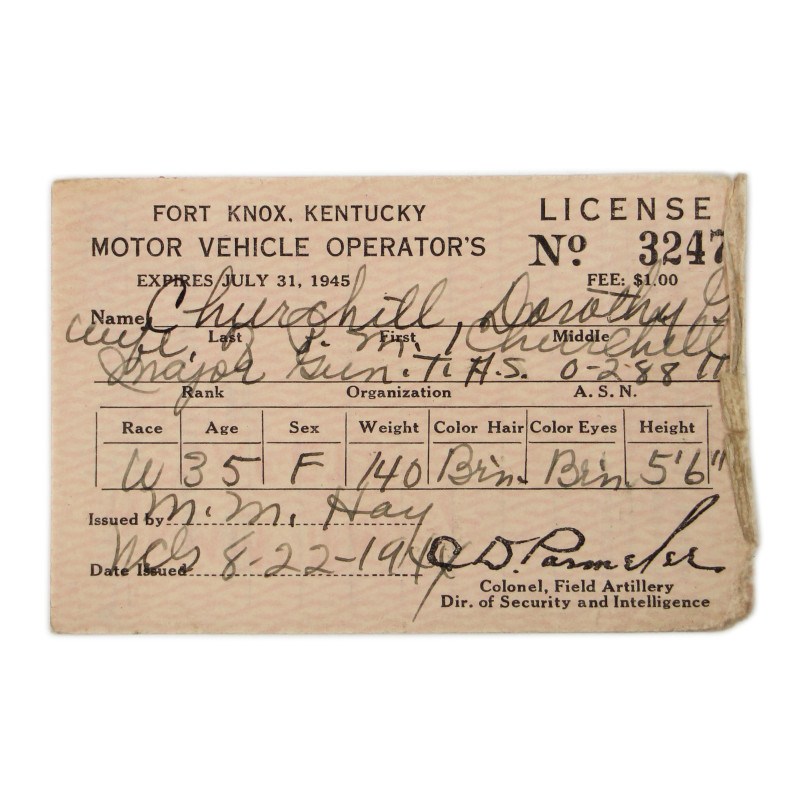 FORT KNOX, KENTUCKY
LICENSE
MOTOR VEHICLE OPERATOR'S
Nº 3247
EXPIRES JULY 31, 1945
FEE: $1.00
Name Churchill, Dorothy G
Last First Middle
wife of P. M. Churchill
Major Gun. T. A.S. 0-288
Rank Organization A. S. N.
Race Age Sex Weight Color Hair Color Eyes Height
W 35 F 140 Brn. Brn. 5'6"
Issued by M. M. Hay
Date Issued 8-22-1944
D. Parmelee
Colonel, Field Artillery
Dir. of Security and Intelligence